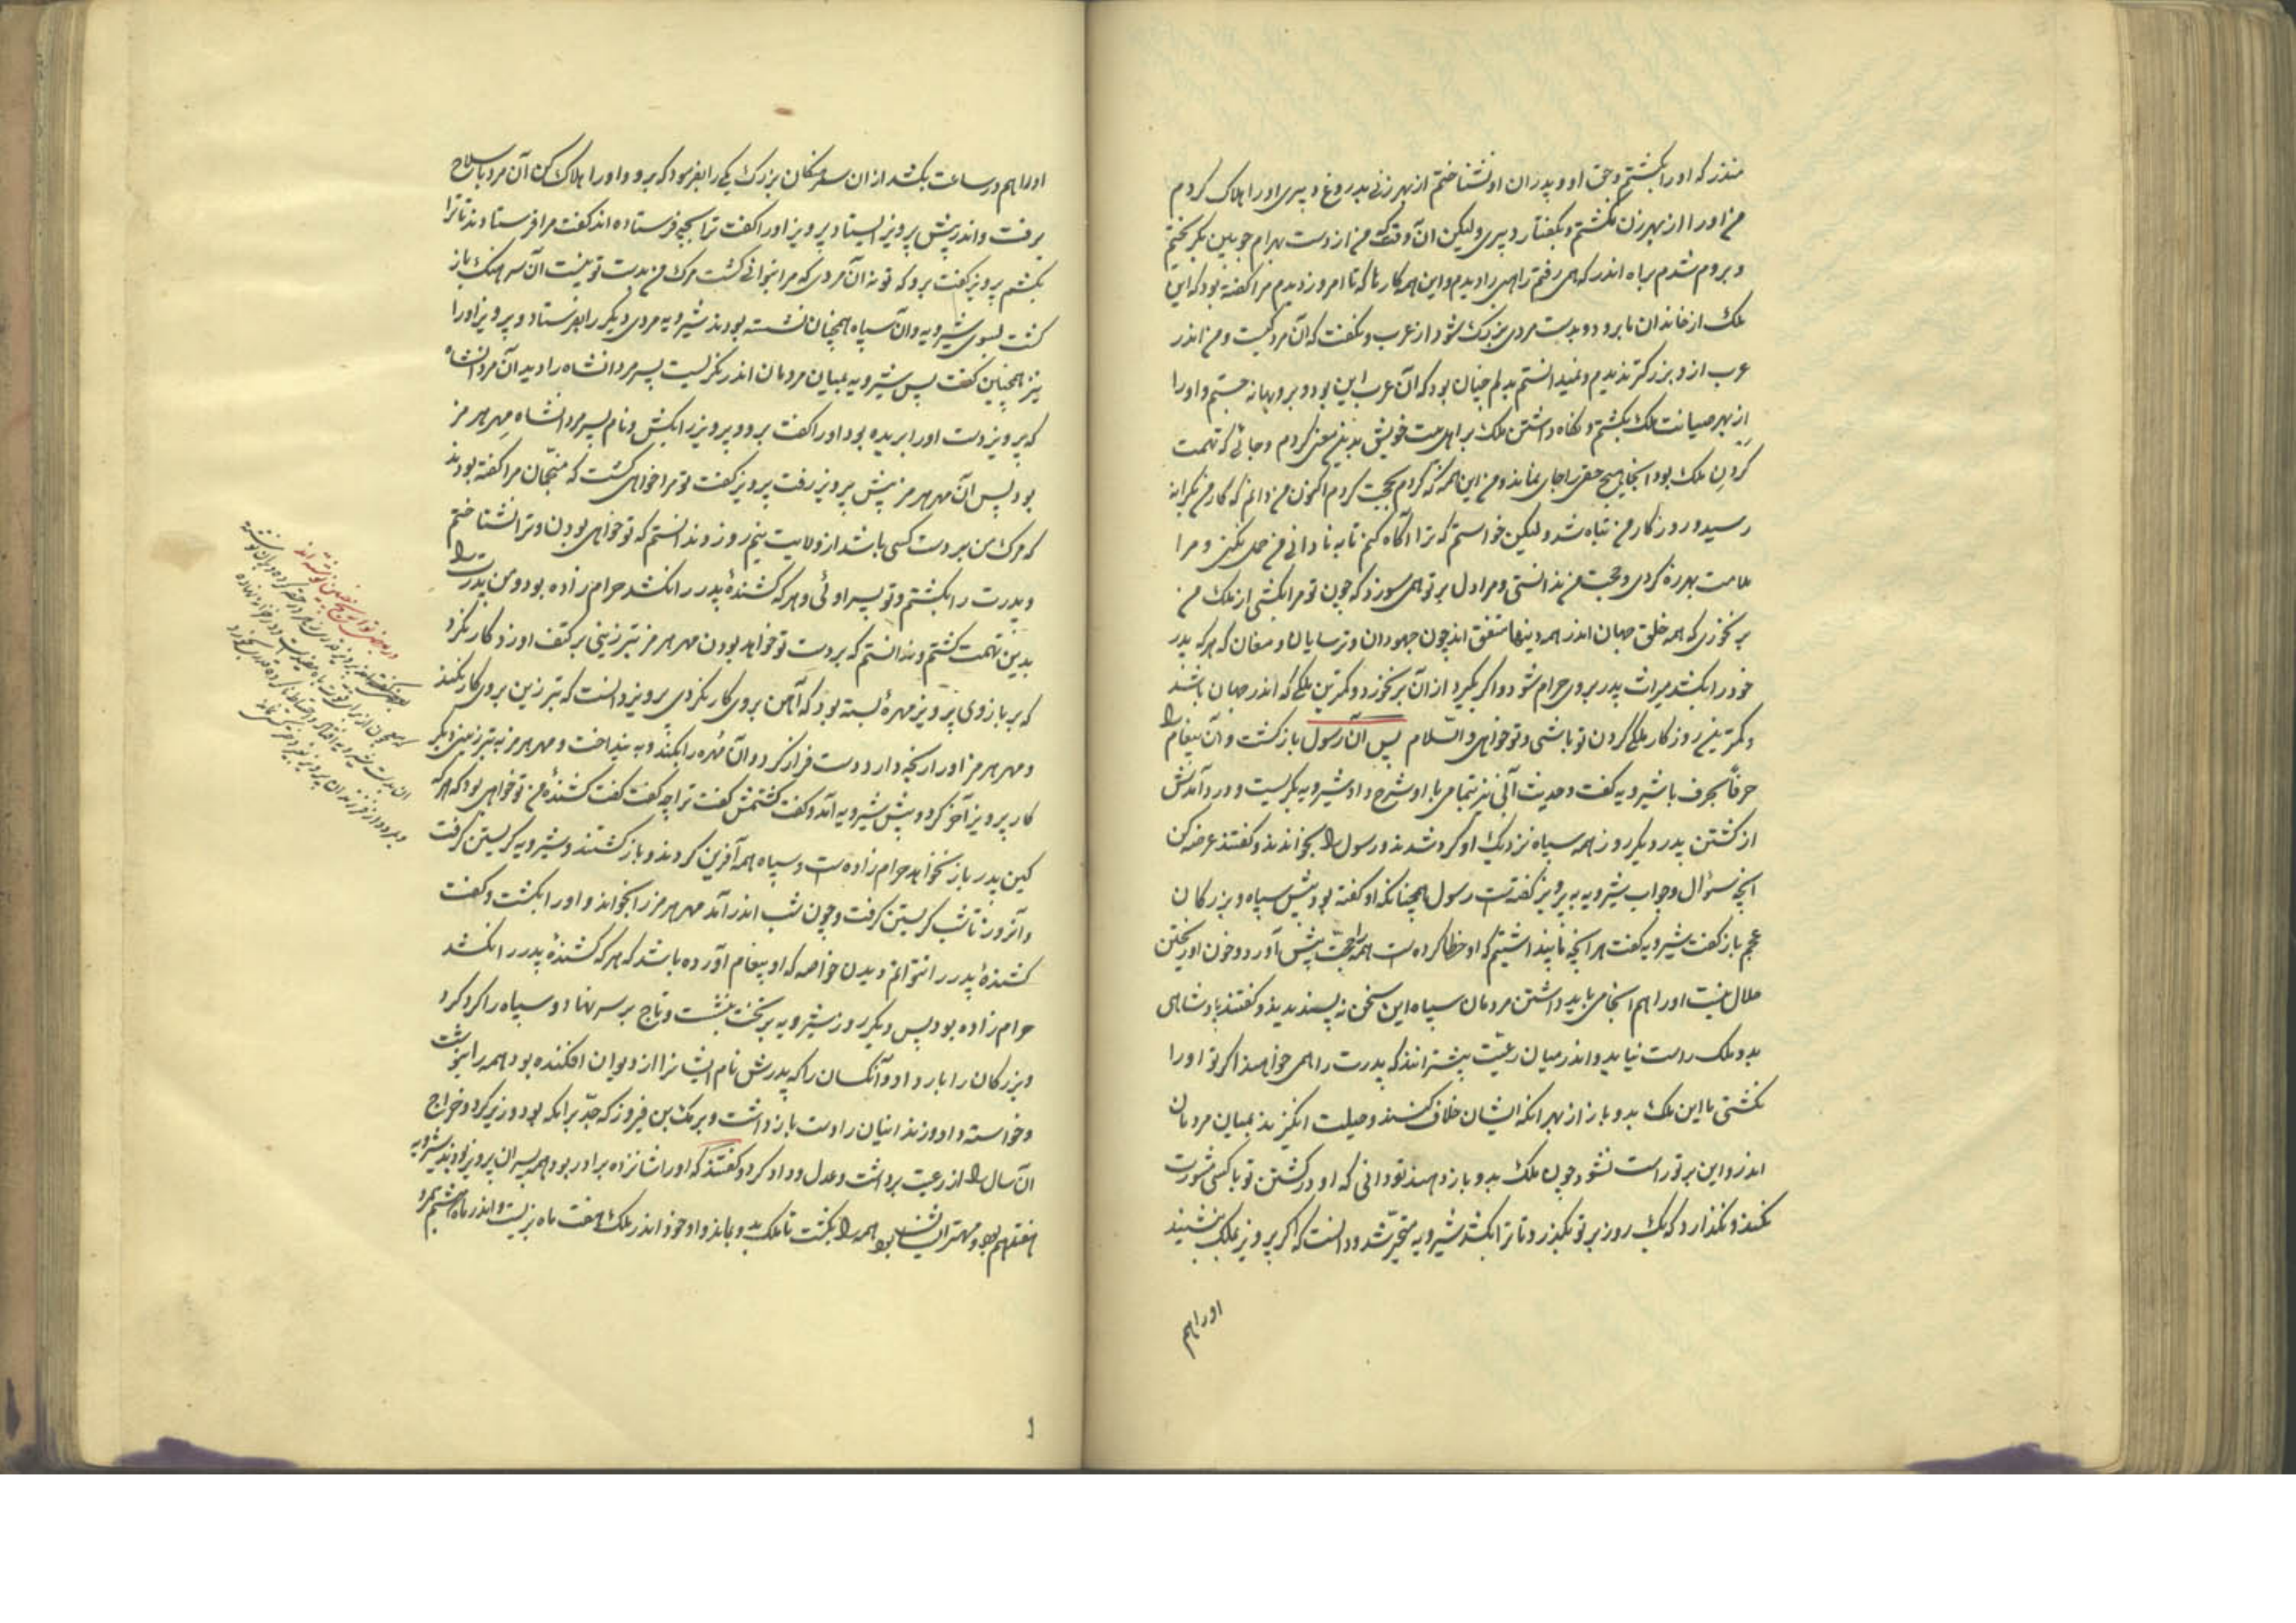 منذر که اورا بکشتم و حق او و پدران او نشناختم از بهر زنی بدروغ دبیری اورا هلاک کردم
من اورا از بهر زن نکشتم و بگفتار دبیری ولیکن آن وقت که من از دست بهرام چوبین بگریختم
و بروم شدم براه اندر که همی رفتم راهبی را دیدم و این همه کارها که تا امروز دیدم مرا گفته بود که این
ملک از خاندان ما برود و بدست مردی بزرگ شود از عرب و نگفت که آن مرد کیست و من اندر
عرب ازو بزرگتر ندیدم و نمیدانستم بدلم چنان بود که آن عرب این بود و برو بهانه جستم و اورا
از بهر صیانت ملک بکشتم و نگاه داشتن ملک بر اهل بیت خویش بدین معنی کردم و جائی که تهمت
کردن ملک بود آنجا هیچ حقی را جای نماند و من این همه که کردم بحجت کردم اکنون من دانم که کار من بکرانه
رسید و روزکار من تباه شد ولیکن خواستم که ترا آگاه کنم تا به نادانی من حمل نکنی و مرا
ملامت بهرزه کردی و حجت من ندانستی و مرا دل بر تو همی سوزد که چون تو مرا بکشی از ملک من
برنخوری که همه خلق جهان اندر همه دینها متفق اند چون جهودان و ترسایان و مغان که هر که پدر
خود را بکشد میراث پدر بروی حرام شود و اگر بگیرد از آن برنخورد و کمترین ملکی که اندر جهان باشد
و کمترین روزکار ملکی کردن تو باشی و تو خواهی والسلام پس آن رسول بازکشت و آن پیغام را
حرفاً بحرف با شیرویه کفت و حدیث آنی نیز بتمامی با او شرح داد شیرویه بکریست و درد آمدش
از کشتن پدر دیکر روز همه سپاه نزدیک او کرد شدند و رسول را بخواندند و کفتند عرضه کن
آنچه سؤال و جواب شیرویه به پرویز کفته است رسول همچنانکه او کفته بود پیش سپاه و بزرکان
عجم باز کفت شیرویه کفت هر آنچه ما پنداشتیم که او خطا کرده است همه را حجت پیش آورد و خون او ریختن
حلال نیست اورا هم آنجا می باید داشتن مردمان سپاه این سخن نه پسندیدند و کفتند پادشاهی
بدو ملک راست نیاید و اندر میان رعیت بیشترانند که پدرت را همی خواهند اکر تو اورا
نکشتی ما این ملک بدو باز از بهر آنکه ایشان خلاف کنند و حیلت انکیزند بمیان مردمان
اندر و این بر تو راست نشود چون ملک بدو باز دهند تو دانی که او در کشتن تو با کسی مشورت
نکند و نکذارد که یک روز بر تو بکذرد تا ترا بکشد شیرویه متحیر شد و دانست که اکر پرویز بملک بنشیند
اورا هم
اورا هم در ساعت بکشد از ان سرهنکان بزرک یکی را بفرمود که برو و اورا هلاک کن آن مرد با سلاح
برفت و اندر پیش پرویز ایستاد پرویز اورا کفت ترا بچه فرستاده اند کفت مرا فرستادند تا ترا
بکشم پرویز کفت برو که تو نه آن مردی که مرا بتوانی کشت مرک من بدست تو نیست آن سرهنک باز
کشت بسوی شیرویه و آن سپاه همچنان نشسته بودند شیرویه مردی دیکر را بفرستاد و پرویز اورا
نیز همچنین کفت پس شیرویه بمیان مردمان اندر نکریست پسر مردانشاه را دید آن مردانشاه
که پرویز دست اورا بریده بود اورا کفت برو و پرویز را بکش و نام پسر مردانشاه مهر هرمز
بود پس آن مهر هرمز پیش پرویز رفت پرویز کفت تو مرا خواهی کشت که منجمان مرا کفته بودند
که مرک من بر دست کسی باشد از ولایت نیم روز و ندانستم که تو خواهی بودن و ترا نشناختم
و پدرت را بکشتم و تو پسر اوئی و هر که کشندهٔ پدر را نکشد حرام زاده بود و من پدرت را
بدین تهمت کشتم و ندانستم که بر دست تو خواهد بودن مهر هرمز تبرزینی بر کتف او زد کار نکرد
که بر بازوی پرویز مهرهٔ بسته بود که آهن بروی کار نکردی پرویز دانست که تبرزین بروی کار نکند
و مهر هرمز اورا رنجه دارد دست فراز کرد و آن مهره را بکند و به بنداخت و مهر هرمز به تبرزین دیکر
کار پرویز آخر کرد و پیش شیرویه آمد و کفت کشتمش کفت ترا چه کفت کفت کشندهٔ من تو خواهی بود که هر که
کین پدر باز نخواهد حرام زاده است و سپاه همه آفرین کردند و باز کشتند و شیرویه کریستن کرفت
و آنروز تا شب کریستن کرفت و چون شب اندر آمد مهر هرمز را بخواند و اورا بکشت و کفت
کشندهٔ پدر را نتوانم دیدن خواصه که او پیغام آورده باشد که هر که کشندهٔ پدر را نکشد
حرام زاده بود پس دیکر روز شیرویه بر تخت بنشست و تاج بر سر نهاد و سپاه را کرد کرد
و بزرکان را بار داد و آنکسان را که پدرش نام ایشانرا از دیوان افکنده بود همه را بنوشت
و خواسته داد و زندانیان را دست بازداشت و برمک بن فیروز که جد برامکه بود وزیر کرد و خراج
آن سال را از رعیت برداشت و عدل و داد کرد و کفتند که اورا شانزده برادر بود و همه پسران پرویز بودند شیرویه
هفتدهم بود و مهتر ایشان بود همه را بکشت تا ملک بدو بماند و او خود اندر ملک هفت ماه بزیست و اندر ماه هشتم بمرد